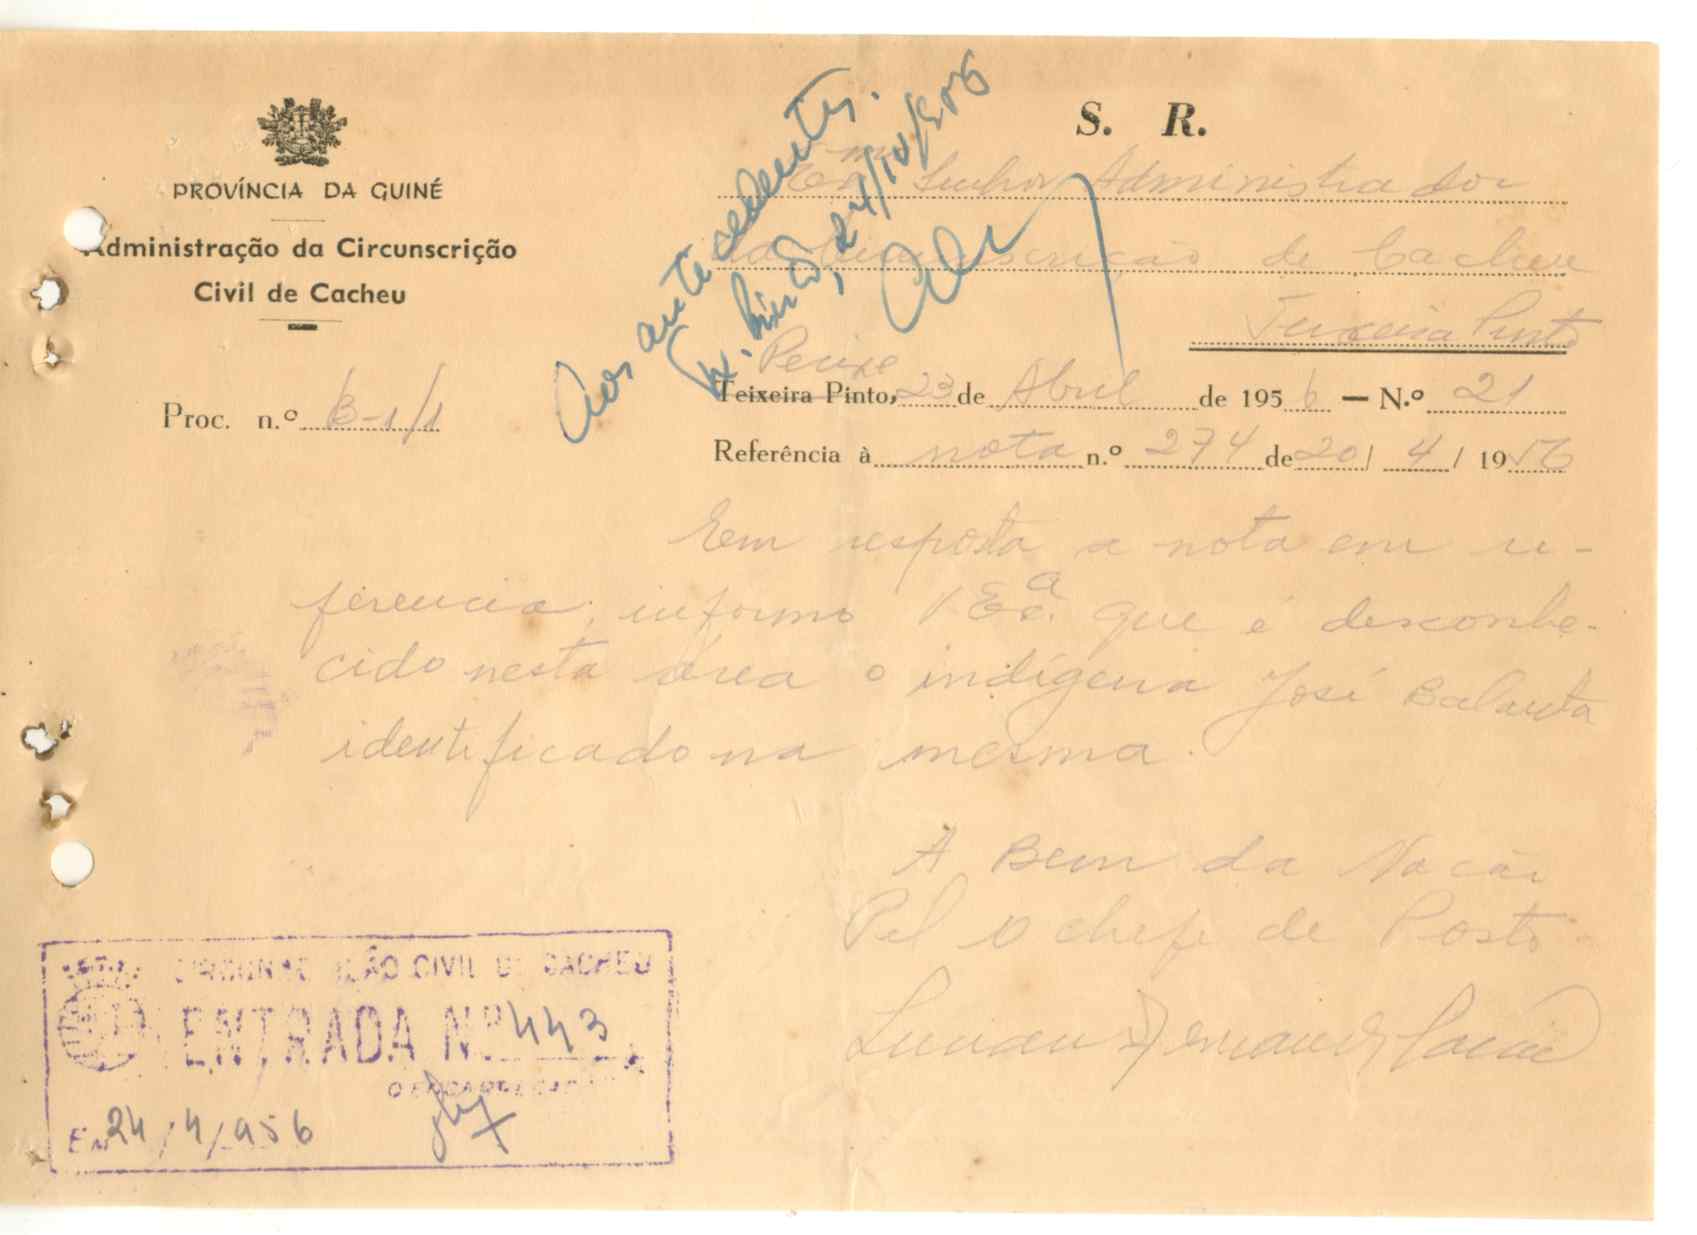 PROVÍNCIA DA GUINÉ
Administração da Circunscrição
Civil de Cacheu
Proc. n.º B-1/1
Aos antecedentes.
S. R.
Exmo Senhor Administrador
da Circunscrição de Cacheu
Teixeira Pinto
Pecixe
Teixeira Pinto, 23 de Abril de 1956 — N.º 21
Referência à nota n.º 274 de 20 / 4 / 1956
Em resposta a nota em re-
ferencia, informo V Exª. que é desconhe-
cido nesta área o indígena José Balanta
identificado na mesma.
A Bem da Nação
Pel O chefe de Posto
CIRCUNSCRIÇÃO CIVIL DE CACHEU
ENTRADA N.º 443
Em 24/4/956